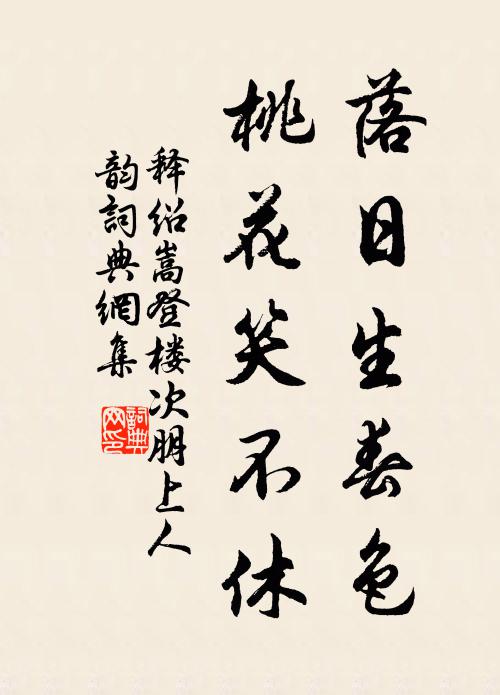 落日生春色
桃花笑不休
释绍嵩登楼次朋上人
韵词典網集
詞典
网印